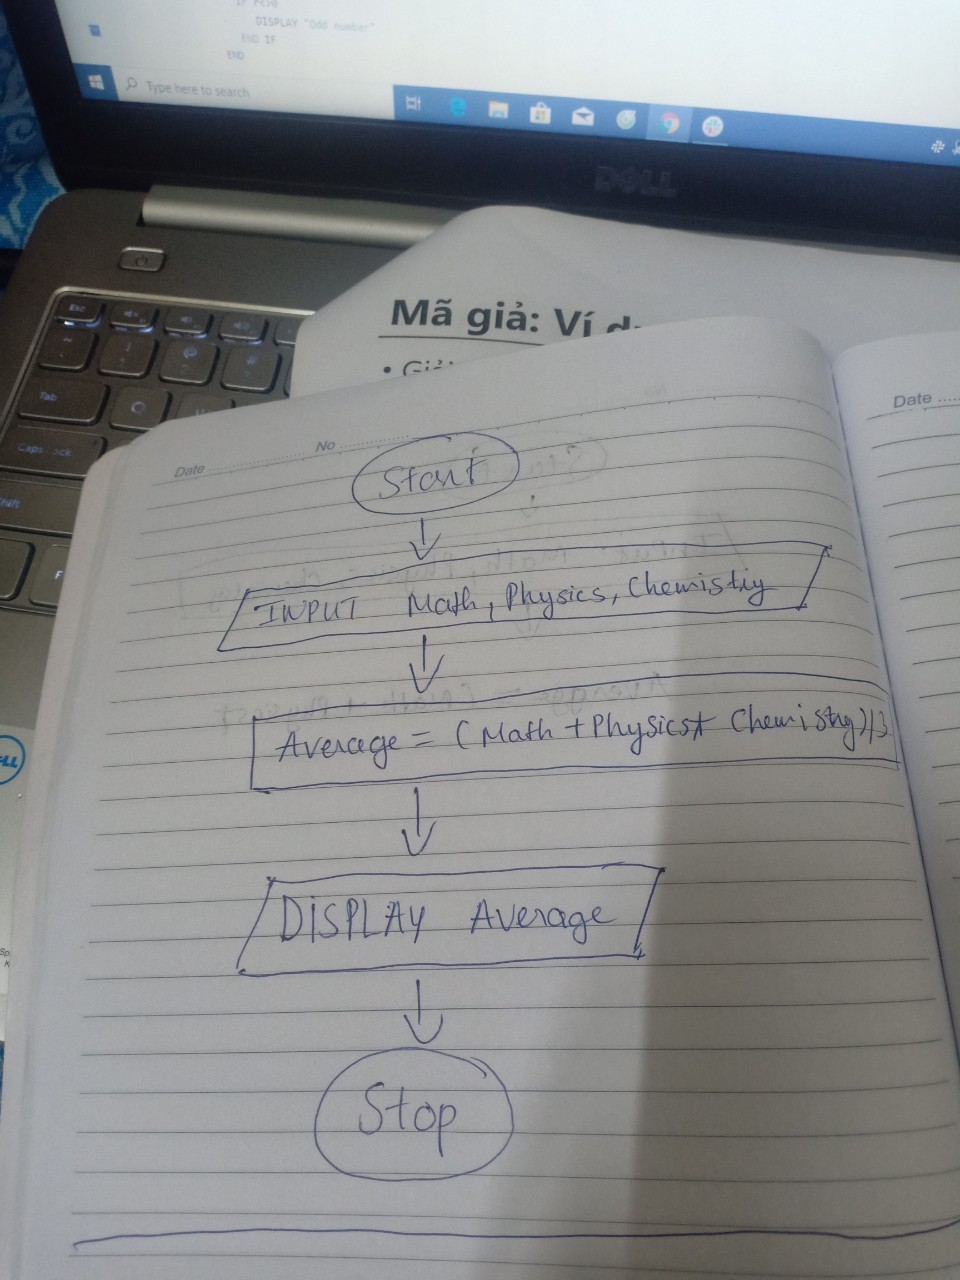 DISPLAY "Odd number"
END IF
END
Type here to search
DELL
Mã giả: Ví
Esc
Tab
Caps Lock
Shift
F
Date
No
Date
Start
INPUT Math, Physics, Chemistry
Average = (Math + Physics + Chemistry)/3
DISPLAY Average
Stop